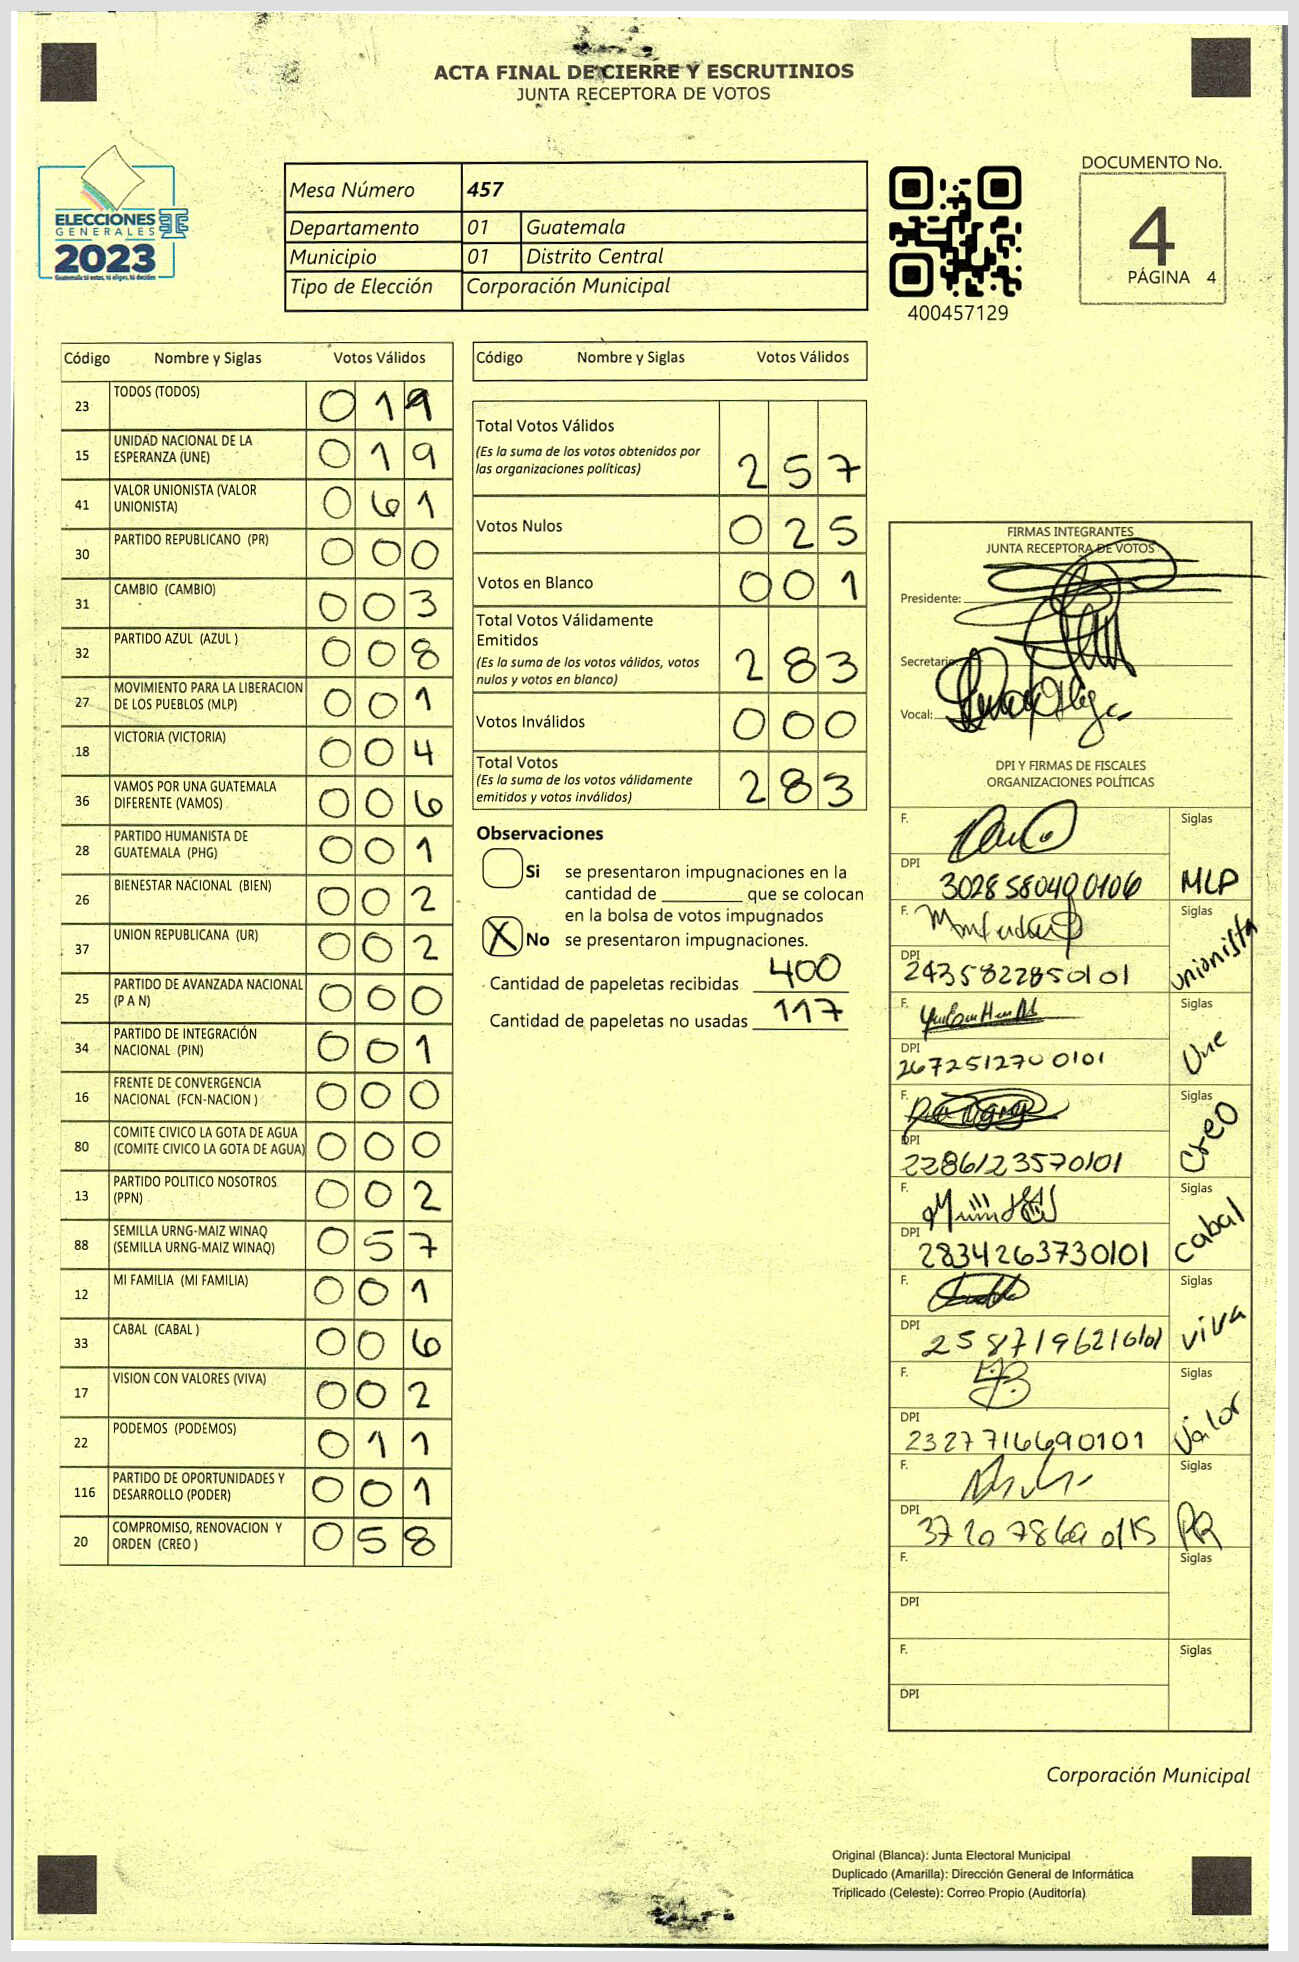 ACTA FINAL DE CIERRE Y ESCRUTINIOS
JUNTA RECEPTORA DE VOTOS
ELECCIONES
GENERALES
2023
Guatemala tú votas, tú eliges, tú decides
Mesa Número 457
Departamento 01 Guatemala
Municipio 01 Distrito Central
Tipo de Elección Corporación Municipal
400457129
DOCUMENTO No.
4
PÁGINA 4
Código Nombre y Siglas Votos Válidos
23 TODOS (TODOS) 0 1 9
15 UNIDAD NACIONAL DE LA ESPERANZA (UNE) 0 1 9
41 VALOR UNIONISTA (VALOR UNIONISTA) 0 6 1
30 PARTIDO REPUBLICANO (PR) 0 0 0
31 CAMBIO (CAMBIO) 0 0 3
32 PARTIDO AZUL (AZUL ) 0 0 8
27 MOVIMIENTO PARA LA LIBERACION DE LOS PUEBLOS (MLP) 0 0 1
18 VICTORIA (VICTORIA) 0 0 4
36 VAMOS POR UNA GUATEMALA DIFERENTE (VAMOS) 0 0 6
28 PARTIDO HUMANISTA DE GUATEMALA (PHG) 0 0 1
26 BIENESTAR NACIONAL (BIEN) 0 0 2
37 UNION REPUBLICANA (UR) 0 0 2
25 PARTIDO DE AVANZADA NACIONAL (P A N) 0 0 0
34 PARTIDO DE INTEGRACIÓN NACIONAL (PIN) 0 0 1
16 FRENTE DE CONVERGENCIA NACIONAL (FCN-NACION ) 0 0 0
80 COMITE CIVICO LA GOTA DE AGUA (COMITE CIVICO LA GOTA DE AGUA) 0 0 0
13 PARTIDO POLITICO NOSOTROS (PPN) 0 0 2
88 SEMILLA URNG-MAIZ WINAQ (SEMILLA URNG-MAIZ WINAQ) 0 5 7
12 MI FAMILIA (MI FAMILIA) 0 0 1
33 CABAL (CABAL ) 0 0 6
17 VISION CON VALORES (VIVA) 0 0 2
22 PODEMOS (PODEMOS) 0 1 1
116 PARTIDO DE OPORTUNIDADES Y DESARROLLO (PODER) 0 0 1
20 COMPROMISO, RENOVACION Y ORDEN (CREO ) 0 5 8
Código Nombre y Siglas Votos Válidos
Total Votos Válidos
(Es la suma de los votos obtenidos por
las organizaciones políticas) 2 5 7
Votos Nulos 0 2 5
Votos en Blanco 0 0 1
Total Votos Válidamente
Emitidos
(Es la suma de los votos válidos, votos
nulos y votos en blanco) 2 8 3
Votos Inválidos 0 0 0
Total Votos
(Es la suma de los votos válidamente
emitidos y votos inválidos) 2 8 3
Observaciones
Si se presentaron impugnaciones en la
cantidad de ________ que se colocan
en la bolsa de votos impugnados
X No se presentaron impugnaciones.
Cantidad de papeletas recibidas 400
Cantidad de papeletas no usadas 117
FIRMAS INTEGRANTES
JUNTA RECEPTORA DE VOTOS
Presidente:
Secretario:
Vocal:
DPI Y FIRMAS DE FISCALES
ORGANIZACIONES POLÍTICAS
F. Siglas
DPI 3028580490106 MLP
F. Siglas
DPI 2435822850101 unionista
F. Siglas
DPI 2672512700101 Une
F. Siglas
DPI 2286123570101 Creo
F. Siglas
DPI 2834263730101 Cabal
F. Siglas
DPI viva
F. Siglas
DPI 2327716690101 Valor
F. Siglas
DPI PR
F. Siglas
DPI
F. Siglas
DPI
Corporación Municipal
Original (Blanca): Junta Electoral Municipal
Duplicado (Amarilla): Dirección General de Informática
Triplicado (Celeste): Correo Propio (Auditoría)